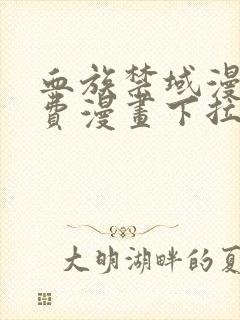 血族禁域漫
費漫畫下拉
大明湖畔的夏